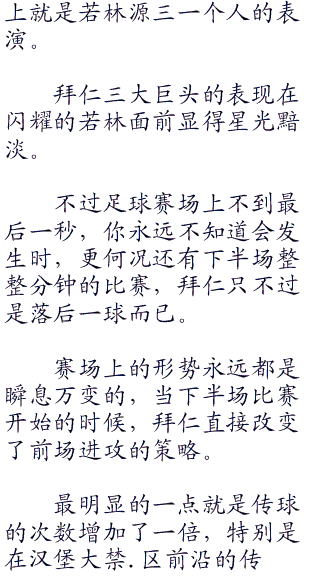 上就是若林源三一个人的表
演。
拜仁三大巨头的表现在
闪耀的若林面前显得星光黯
淡。
不过足球赛场上不到最
后一秒，你永远不知道会发
生时，更何况还有下半场整
整分钟的比赛，拜仁只不过
是落后一球而已。
赛场上的形势永远都是
瞬息万变的，当下半场比赛
开始的时候，拜仁直接改变
了前场进攻的策略。
最明显的一点就是传球
的次数增加了一倍，特别是
在汉堡大禁.区前沿的传